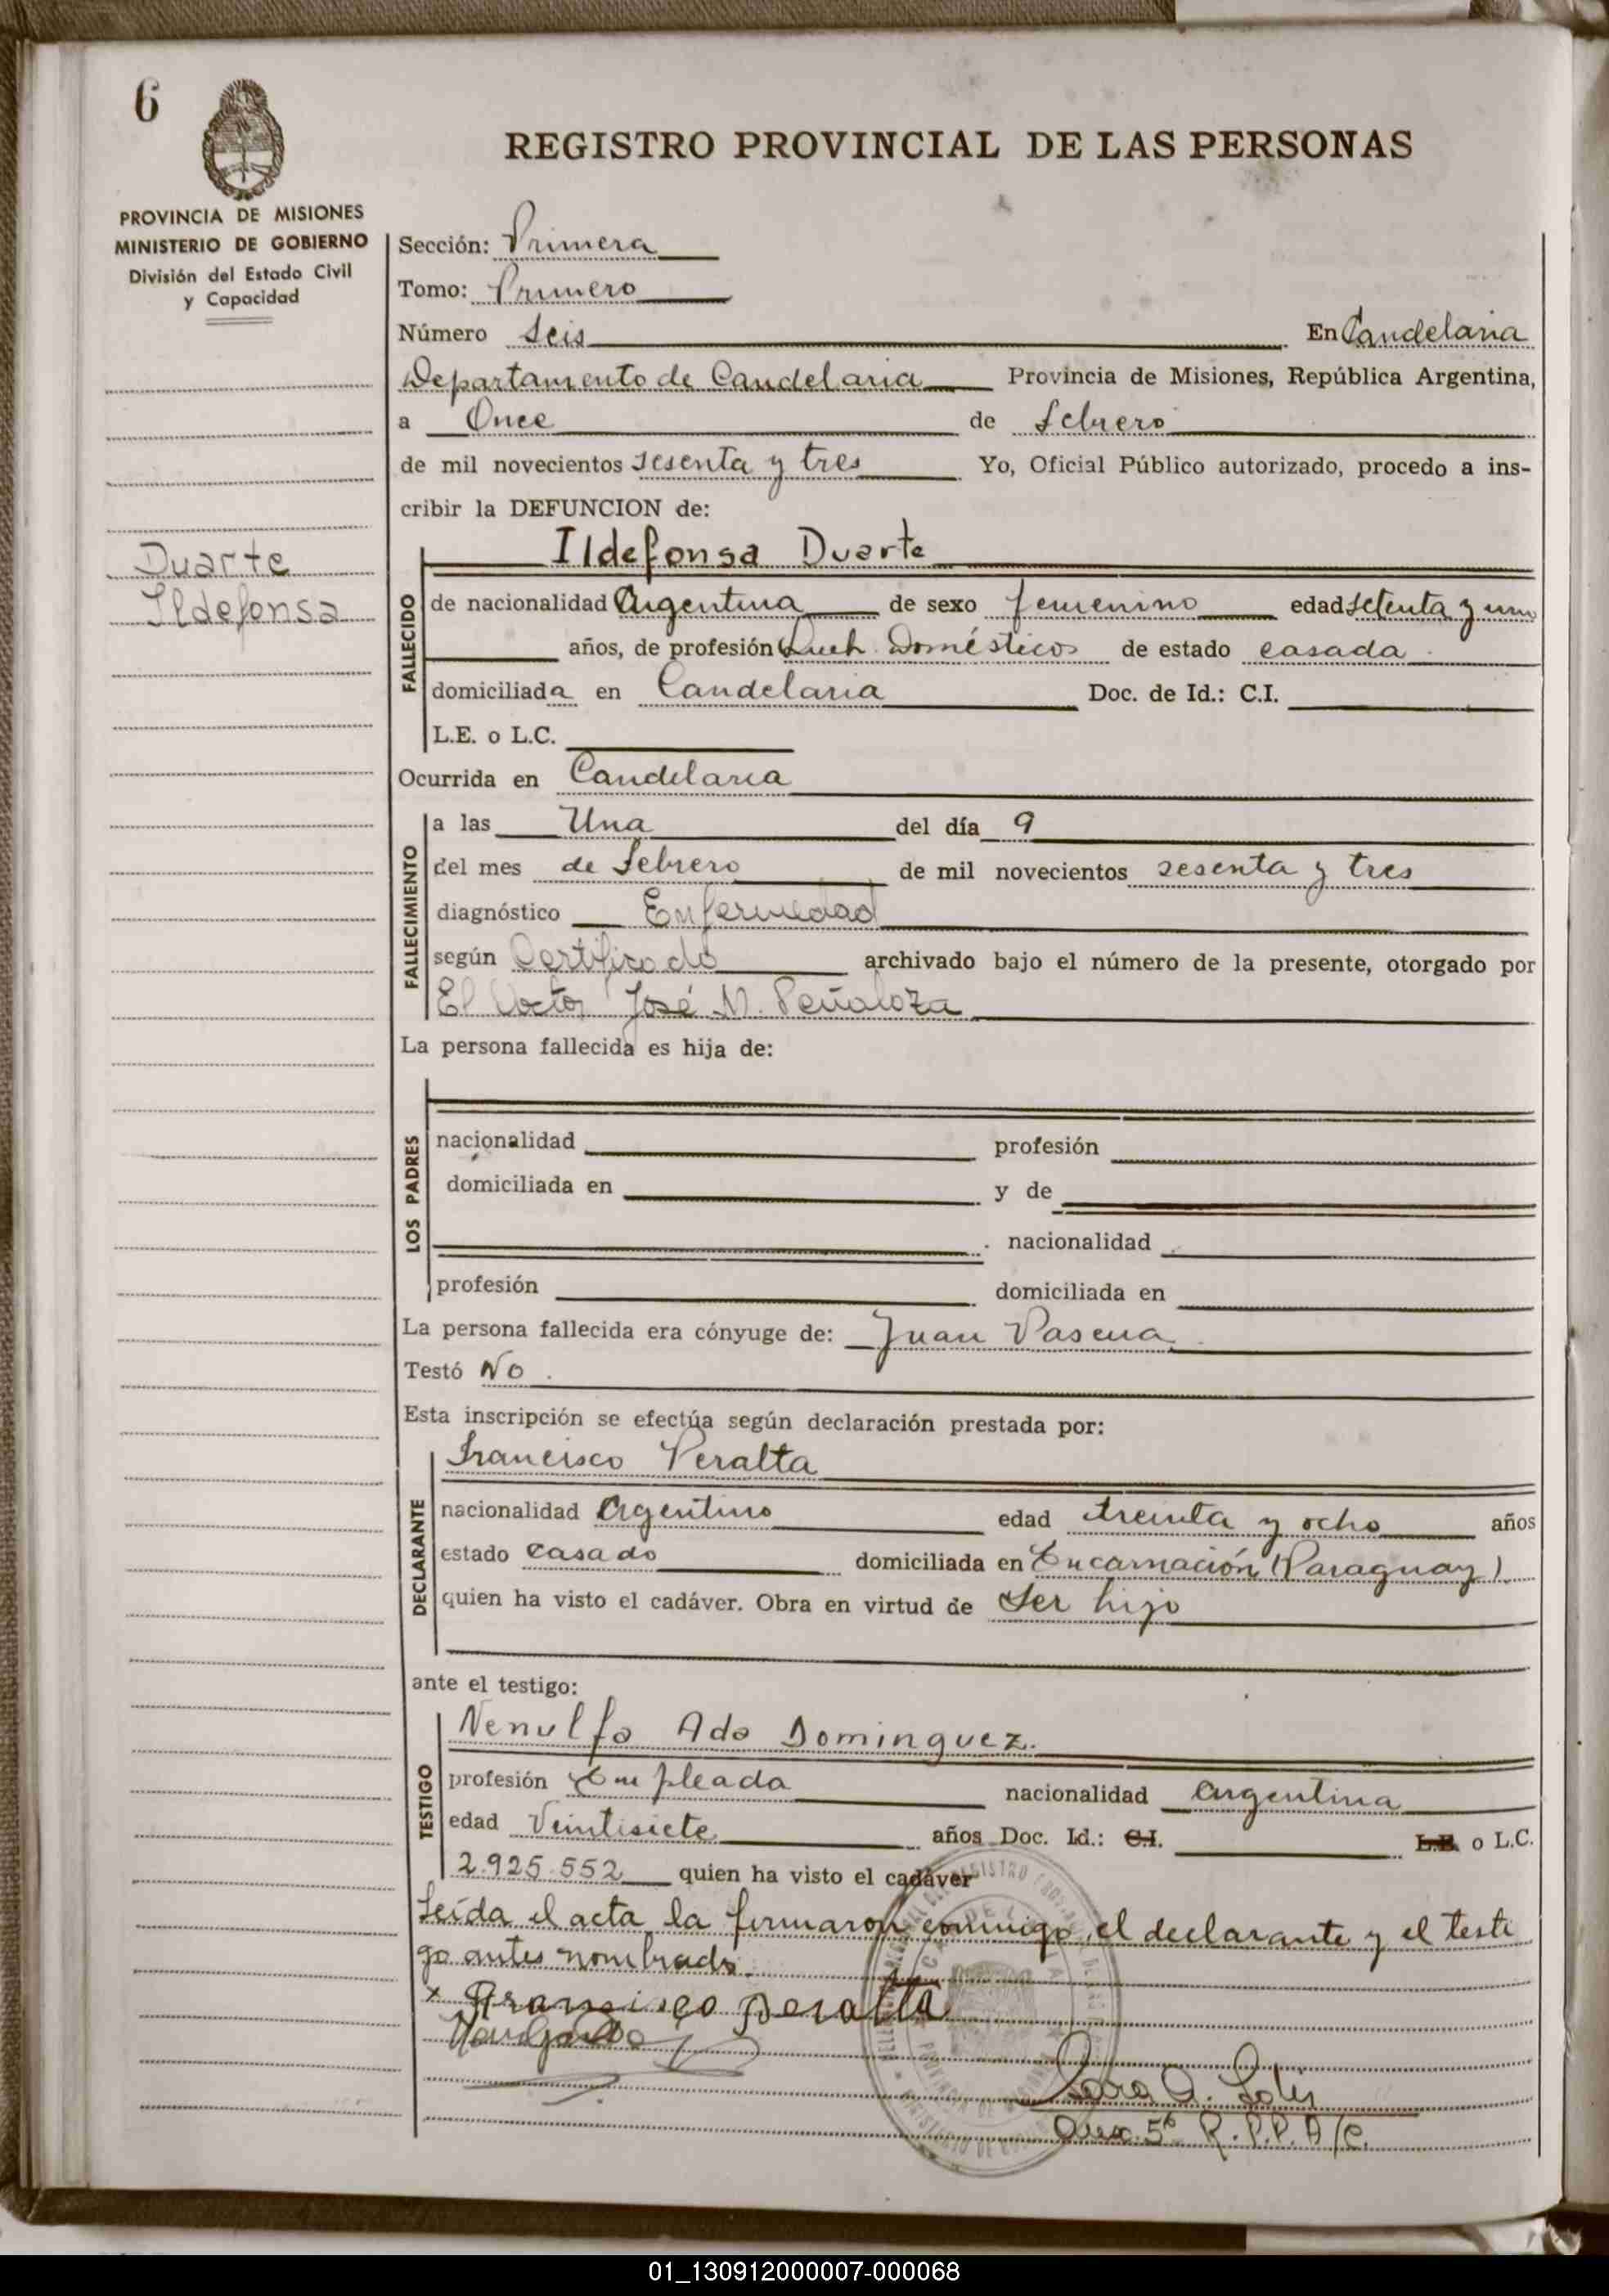 6
REGISTRO PROVINCIAL DE LAS PERSONAS
PROVINCIA DE MISIONES
MINISTERIO DE GOBIERNO
División del Estado Civil
y Capacidad
Sección: Primera
Tomo: Primero
Número Seis En Candelaria
Departamento de Candelaria Provincia de Misiones, República Argentina,
a Once de febrero
de mil novecientos sesenta y tres Yo, Oficial Público autorizado, procedo a ins-
cribir la DEFUNCION de:
Duarte
Ildefonsa
FALLECIDO
Ildefonsa Duarte
de nacionalidad Argentina de sexo femenino edad setenta y uno
años, de profesión Domésticos de estado casada
domiciliada en Candelaria Doc. de Id.: C.I.
L.E. o L.C.
Ocurrida en Candelaria
FALLECIMIENTO
a las Una del día 9
del mes de febrero de mil novecientos sesenta y tres
diagnóstico Enfermedad
según Certificado archivado bajo el número de la presente, otorgado por
El Doctor José M. Peñaloza
La persona fallecida es hija de:
LOS PADRES
nacionalidad profesión
domiciliada en y de
nacionalidad
profesión domiciliada en
La persona fallecida era cónyuge de: Juan
Testó No.
Esta inscripción se efectúa según declaración prestada por:
DECLARANTE
Francisco Peralta
nacionalidad Argentino edad treinta y ocho años
estado casado domiciliada en Encarnación (Paraguay)
quien ha visto el cadáver. Obra en virtud de ser hijo
ante el testigo:
TESTIGO
Nenulfa Ada Dominguez.
profesión Empleada nacionalidad argentina
edad Veintisiete años Doc. Id.: C.I. L.E. o L.C.
2.925.552 quien ha visto el cadáver
Leída el acta la firmaron conmigo, el declarante y el testi
go antes nombrado.
x Francisco Peralta
Sara A. Solis
Aux. 5º R.P.P. A/C.
01_130912000007-000068